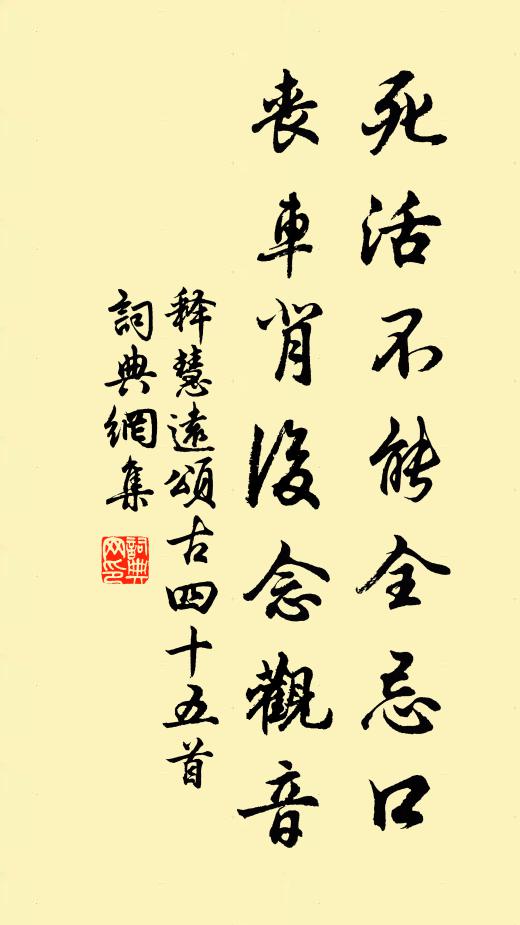 死活不能全忌口
喪車背後念觀音
释慧遠頌古四十五首
詞典網集
詞典网印